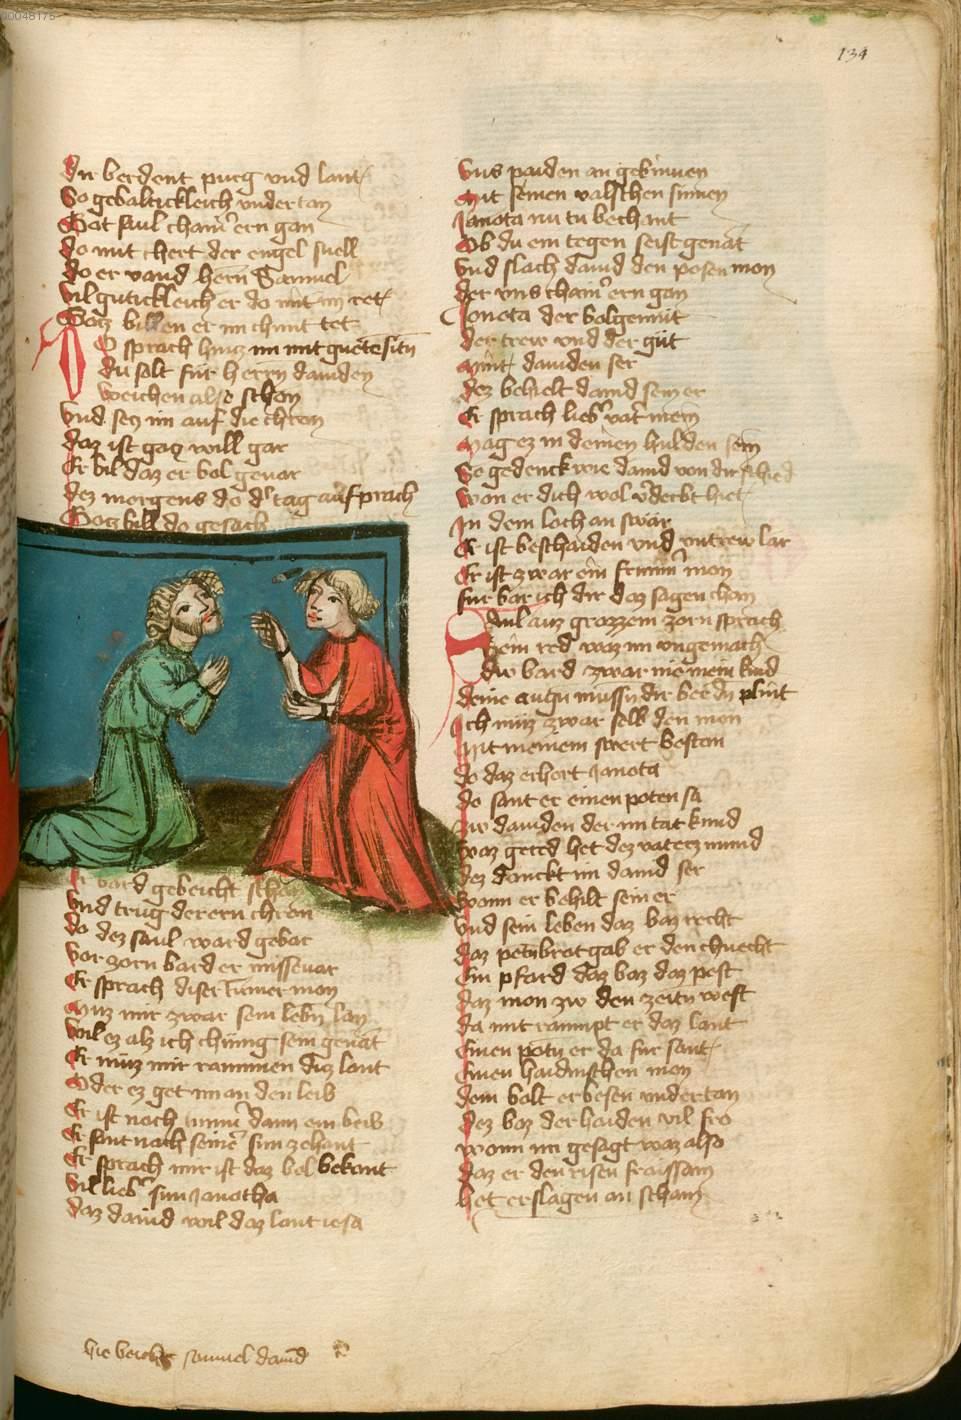 00048175
134
Dir berdent purg vnd lant
So gebaltickleich vndertan
Got saul cham ern gan
do mit chert der engel snell
do er vand hern Samuel
vil gutickleich er do mit im ret
Gotz billen er im chunt tet
O sprach hintz im mit guten siten
du solt fur herrn dauiden
weichen also schon
Vnd secz im auf die chron
daz ist gocz will gar
Er bil daz er bol geuar
dez morgens do der tag aufprach
Gotz bill do gesach
Er ward gebeicht schon
Vnd trug der ern chron
do dez saul ward gebar
Vor zorn bard er misseuar
Er sprach diser tumer mon
Muz mir zwar sein lebn lan
Wil ez alz ich chunig sein genant
Er muz mir raumen diz lant
Oder ez get im an den leib
Er ist noch tummer dann ein beib
Er sant nach seinem sun zehant
Er sprach mir ist daz bol bekant
Vil lieber sun Janotha
daz dauid wil daz lant iesa
Vns paiden an gebinnen
Mit seinen valschen sinnen
Janota nu tu bechant
Ob du ein tegen seist genant
Vnd slach dauid den posen mon
der vns cham ern gan
Jonota der bolgemut
der trew vnd der gut
Mint dauiden ser
dez behielt dauid sein er
Er sprach lieber vater mein
Mag ez in deinen hulden sein
So gedenck wie dauid von dir schied
Won er dich wol verderbt hiet
In dem loch an swar
Er ist beschaiden vnd vntrew lar
Er ist zwar ein frummer mon
fur bar ich dir daz sagen chan
Saul auz grozzem zorn sprach
Sein red waz im vngemach
Du bard zwar nie mein kind
deine augn mussn dir berdn plint
Ich muz zwar selb den mon
Mit meinem swert beston
do daz erhort Janota
do sant er einen poten sa
Zw dauiden der im tat kund
Waz gered het dez vaterz mund
dez danckt im dauid ser
Wann er behilt sein er
Vnd sein leben daz baz recht
daz petnbrot gab er den chnecht
Ein pfard daz baz daz pest
daz mon zw den zeitn west
da mit raumpt er daz lant
Einen potn er da fur sant
Einen haidnischen mon
dem bolt er besen vndertan
dez baz der haiden vil fro
Wonn im gesagt waz also
daz er den risen fraissam
het erslagen an scham
hie beicht samuel dauid